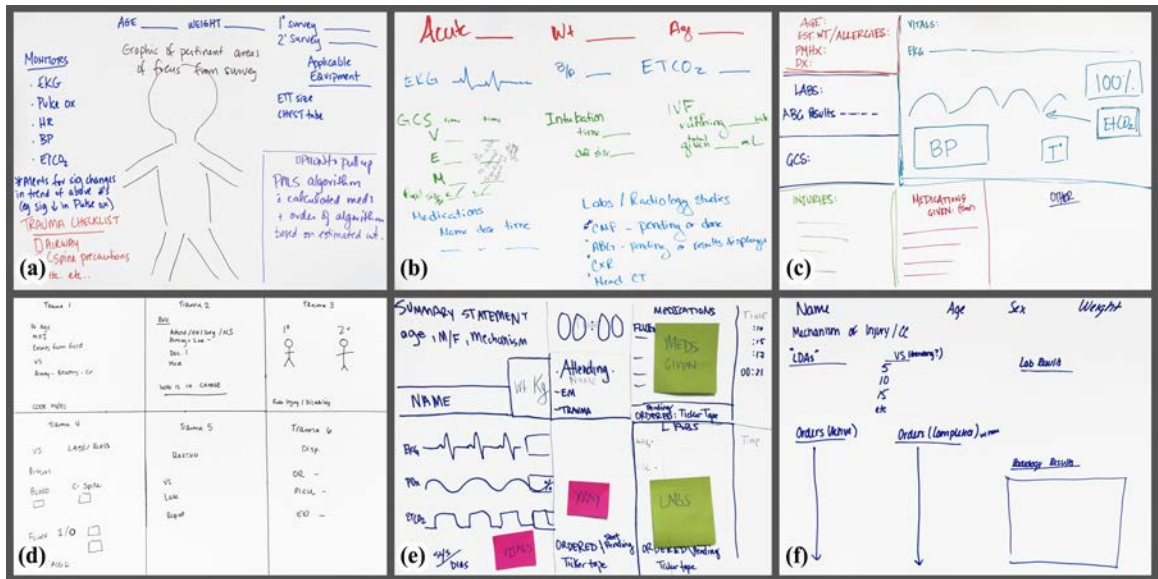 AGE ___ WEIGHT ___
1° survey ___
2° survey ___
Graphic of pertinent areas
of focus from survey
MONITORS
· EKG
· Pulse ox
· HR
· BP
· ETCO2
*Alerts for sig changes
in trend of above #'s
(eg sig ↓ in Pulse ox)
TRAUMA CHECKLIST
AIRWAY
Cspine precautions
etc. etc...
Applicable
Equipment
ETT size
CHEST tube
OPTION to pull up
PALS algorithm
calculated meds
+ order of algorithm
based on estimated wt.
(a)
Acute ___ Wt ___ Age ___
EKG B/p ___ ETCO2 ___
GCS time time
V
E
M
Intubation
time ___
size ___
IVF
running ___
given ___ mL
Medications
Name dose time
Labs / Radiology studies
CMP - pending or done
ABG - pending or results displayed
CXR
Head CT
(b)
AGE:
EST WT/ALLERGIES:
PMHx:
DX:
LABS:
ABG Results - - - -
GCS:
INJURIES:
VITALS:
EKG
100%
EtCO2
BP
T°
MEDICATIONS
GIVEN:
OTHER
(c)
Trauma 1
MOI
Events from field
VS
Airway - Breathing - Cir
CODE MEDS
Trauma 2
WHO IS IN CHARGE
Trauma 3
1° 2°
Injury / Disability
Trauma 4
VS LABS/
BLOOD C-Spine
I/O
Trauma 5
VS
Labs
Trauma 6
Disp.
OR -
PICU -
ED -
(d)
SUMMARY STATEMENT
age, M/F, Mechanism
NAME
Wt Kg
EKG
POx %
ETCO2
SYS/
DIAS
VITALS
00:00
· Attending
Name
- EM
- TRAUMA
XRAY
ORDERED/ Pending
Ticker tape
MEDICATIONS
FLUIDS
MEDS
GIVEN
Pending
ORDERED: Ticker Tape
LABS
LABS
ORDERED/Pending
Ticker tape
TIME
:10
:15
:17
00:21
Time
(e)
Name Age Sex Weight
Mechanism of Injury / CC
"LDAs"
VS
5
10
15
etc
Lab Results
Orders (Active)
Orders (Completed)
Radiology Results
(f)